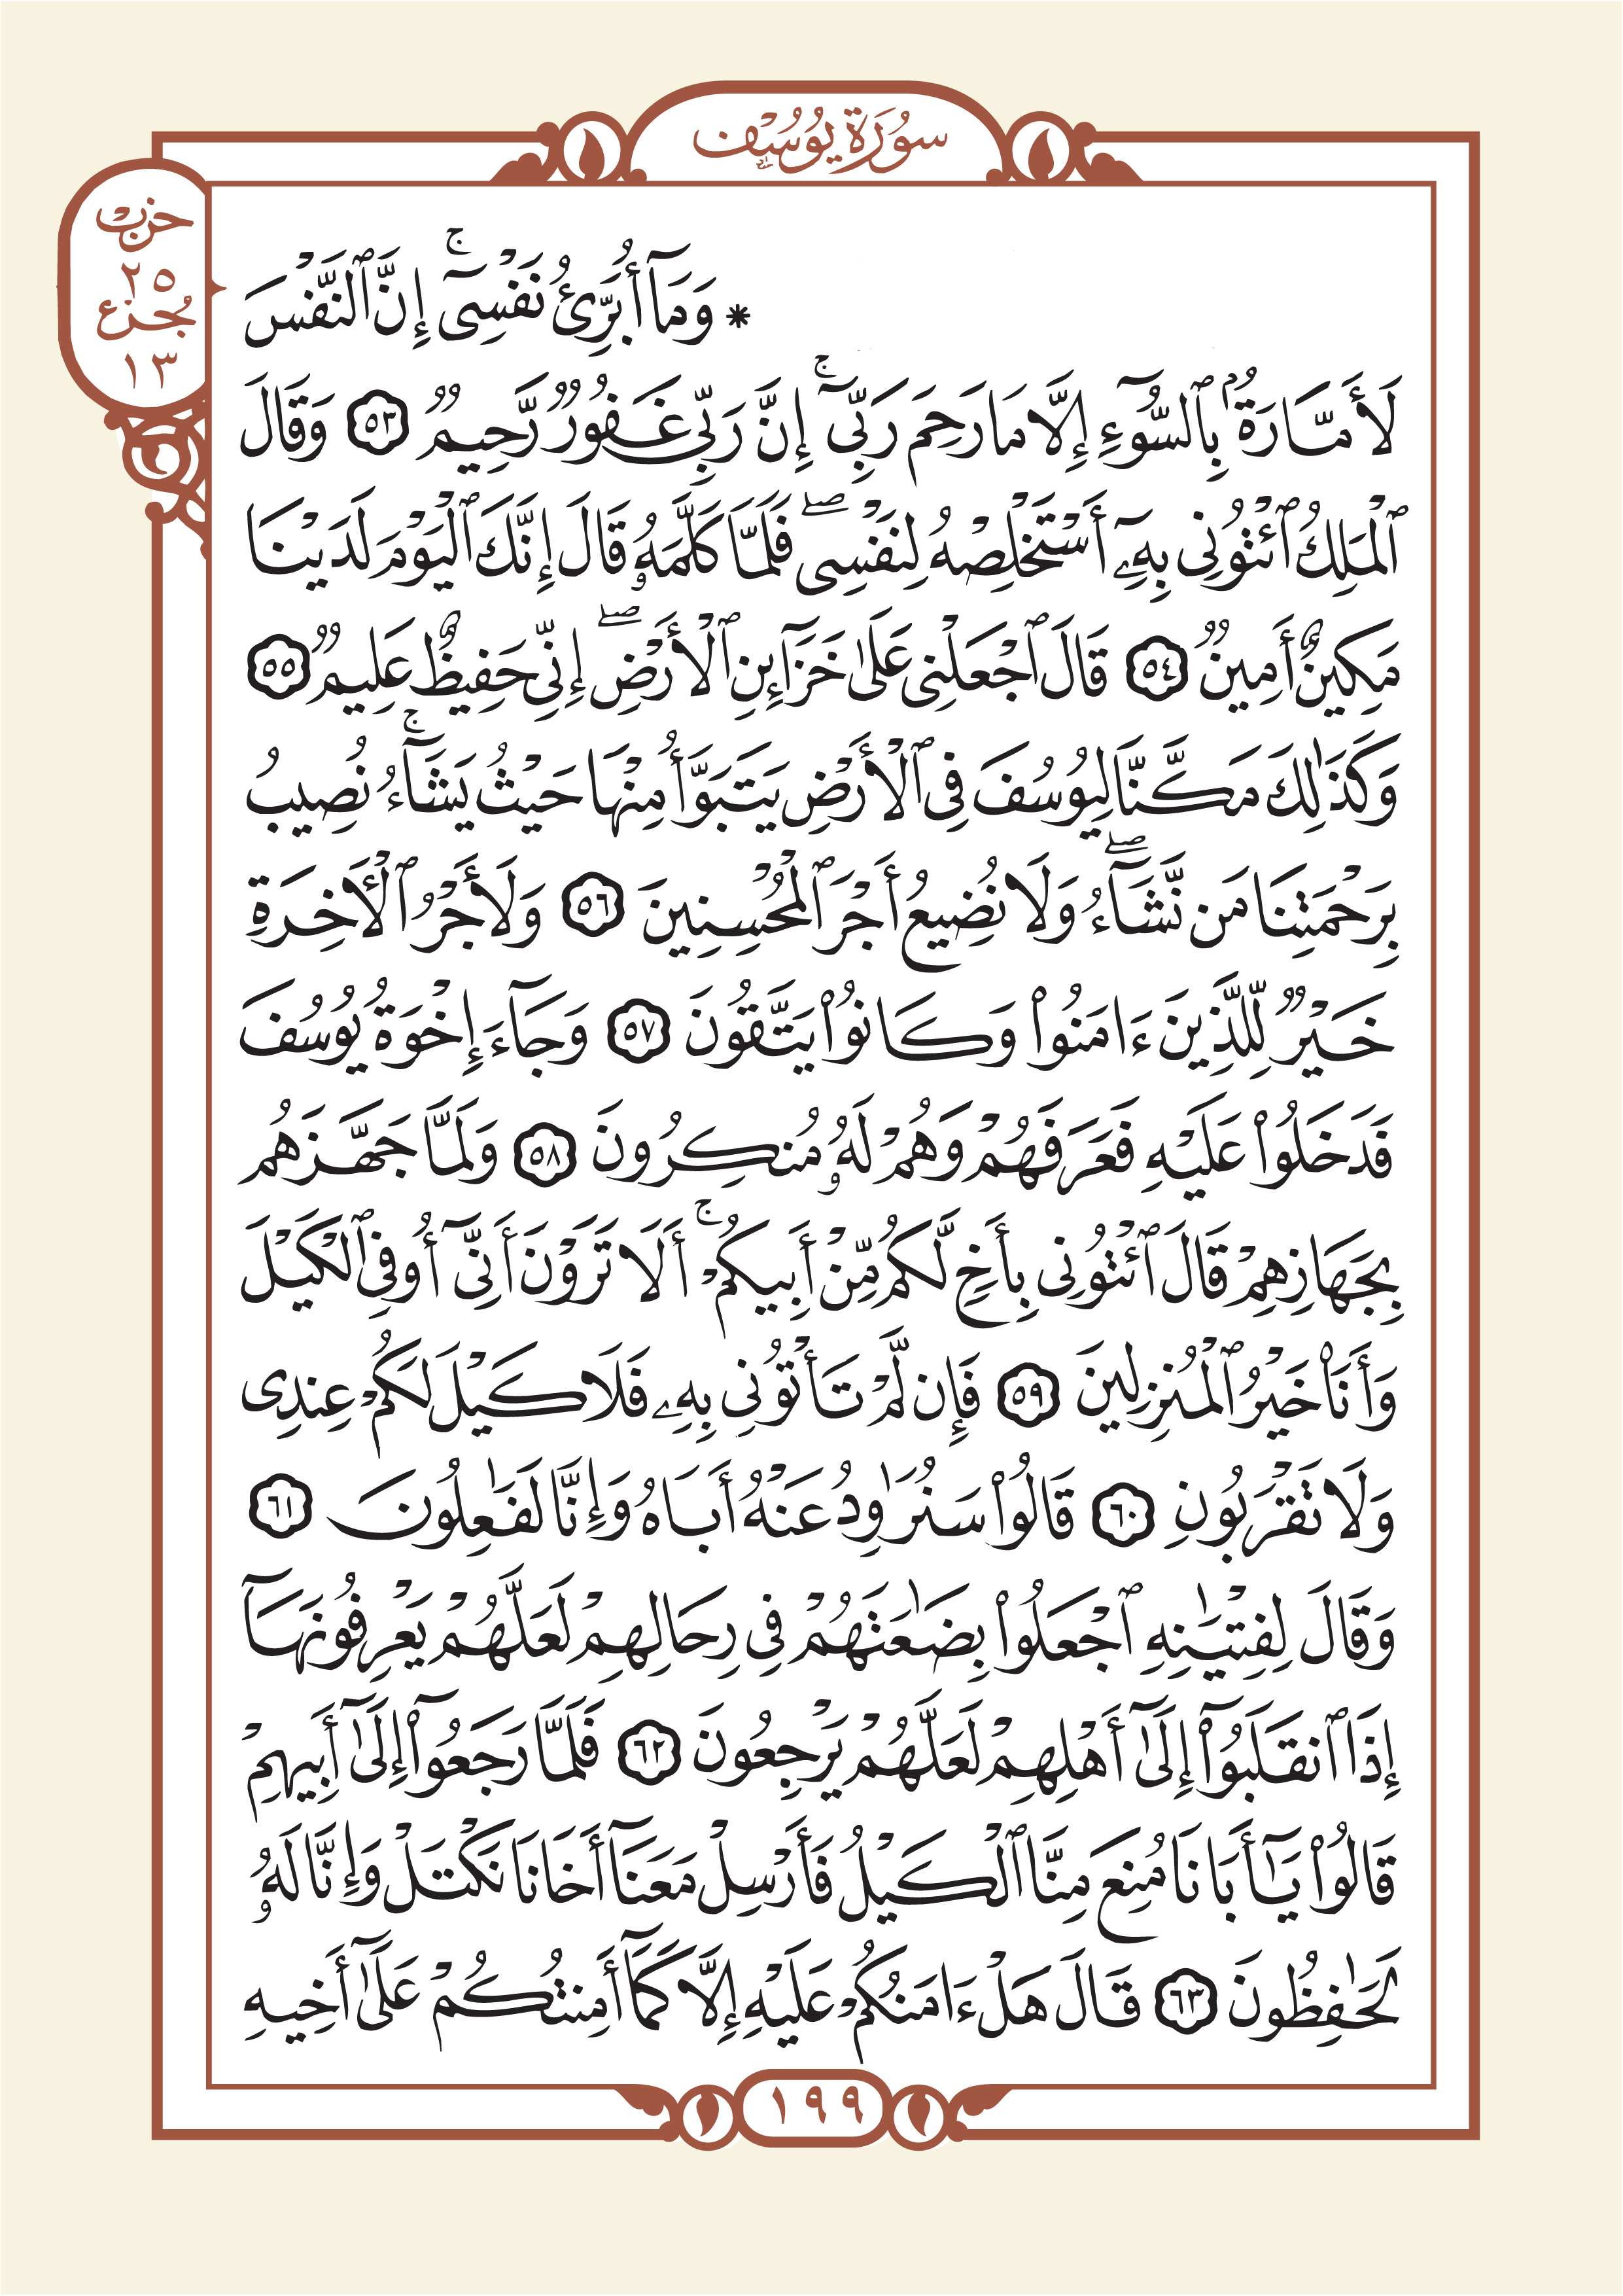 سُورَةُ يُوسُف
حزب
٢٥
جزء
١٣
* وَمَآ أُبَرِّئُ نَفْسِىٓ ۚ إِنَّ ٱلنَّفْسَ
لَأَمَّارَةٌۢ بِٱلسُّوٓءِ إِلَّا مَا رَحِمَ رَبِّىٓ ۚ إِنَّ رَبِّى غَفُورٌ رَّحِيمٌ ٥٣ وَقَالَ
ٱلْمَلِكُ ٱئْتُونِى بِهِۦٓ أَسْتَخْلِصْهُ لِنَفْسِى ۖ فَلَمَّا كَلَّمَهُۥ قَالَ إِنَّكَ ٱلْيَوْمَ لَدَيْنَا
مَكِينٌ أَمِينٌ ٥٤ قَالَ ٱجْعَلْنِى عَلَىٰ خَزَآئِنِ ٱلْأَرْضِ ۖ إِنِّى حَفِيظٌ عَلِيمٌ ٥٥
وَكَذَٰلِكَ مَكَّنَّا لِيُوسُفَ فِى ٱلْأَرْضِ يَتَبَوَّأُ مِنْهَا حَيْثُ يَشَآءُ ۚ نُصِيبُ
بِرَحْمَتِنَا مَن نَّشَآءُ ۖ وَلَا نُضِيعُ أَجْرَ ٱلْمُحْسِنِينَ ٥٦ وَلَأَجْرُ ٱلْأَخِرَةِ
خَيْرٌ لِّلَّذِينَ ءَامَنُوا۟ وَكَانُوا۟ يَتَّقُونَ ٥٧ وَجَآءَ إِخْوَةُ يُوسُفَ
فَدَخَلُوا۟ عَلَيْهِ فَعَرَفَهُمْ وَهُمْ لَهُۥ مُنكِرُونَ ٥٨ وَلَمَّا جَهَّزَهُم
بِجَهَازِهِمْ قَالَ ٱئْتُونِى بِأَخٍ لَّكُم مِّنْ أَبِيكُمْ ۚ أَلَا تَرَوْنَ أَنِّىٓ أُوفِى ٱلْكَيْلَ
وَأَنَا۠ خَيْرُ ٱلْمُنزِلِينَ ٥٩ فَإِن لَّمْ تَأْتُونِى بِهِۦ فَلَا كَيْلَ لَكُمْ عِندِى
وَلَا تَقْرَبُونِ ٦٠ قَالُوا۟ سَنُرَٰوِدُ عَنْهُ أَبَاهُ وَإِنَّا لَفَـٰعِلُونَ ٦١
وَقَالَ لِفِتْيَـٰنِهِ ٱجْعَلُوا۟ بِضَـٰعَتَهُمْ فِى رِحَالِهِمْ لَعَلَّهُمْ يَعْرِفُونَهَآ
إِذَا ٱنقَلَبُوٓا۟ إِلَىٰٓ أَهْلِهِمْ لَعَلَّهُمْ يَرْجِعُونَ ٦٢ فَلَمَّا رَجَعُوٓا۟ إِلَىٰٓ أَبِيهِمْ
قَالُوا۟ يَـٰٓأَبَانَا مُنِعَ مِنَّا ٱلْكَيْلُ فَأَرْسِلْ مَعَنَآ أَخَانَا نَكْتَلْ وَإِنَّا لَهُۥ
لَحَـٰفِظُونَ ٦٣ قَالَ هَلْ ءَامَنُكُمْ عَلَيْهِ إِلَّا كَمَآ أَمِنتُكُمْ عَلَىٰٓ أَخِيهِ
١٩٩